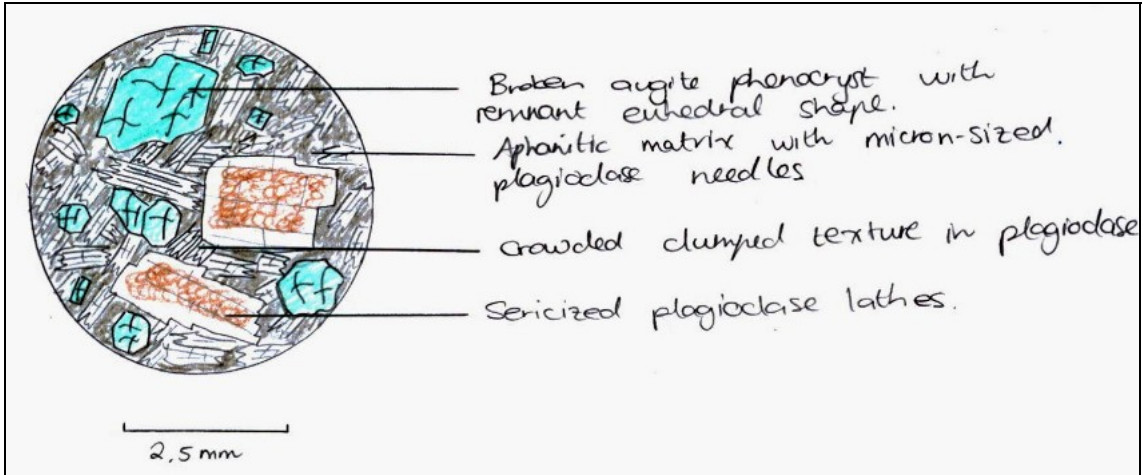 Broken augite phenocryst with
remnant euhedral shape.
Aphanitic matrix with micron-sized.
plagioclase needles
Crowded clumped texture in plagioclase
Sericized plagioclase lathes.
2.5 mm